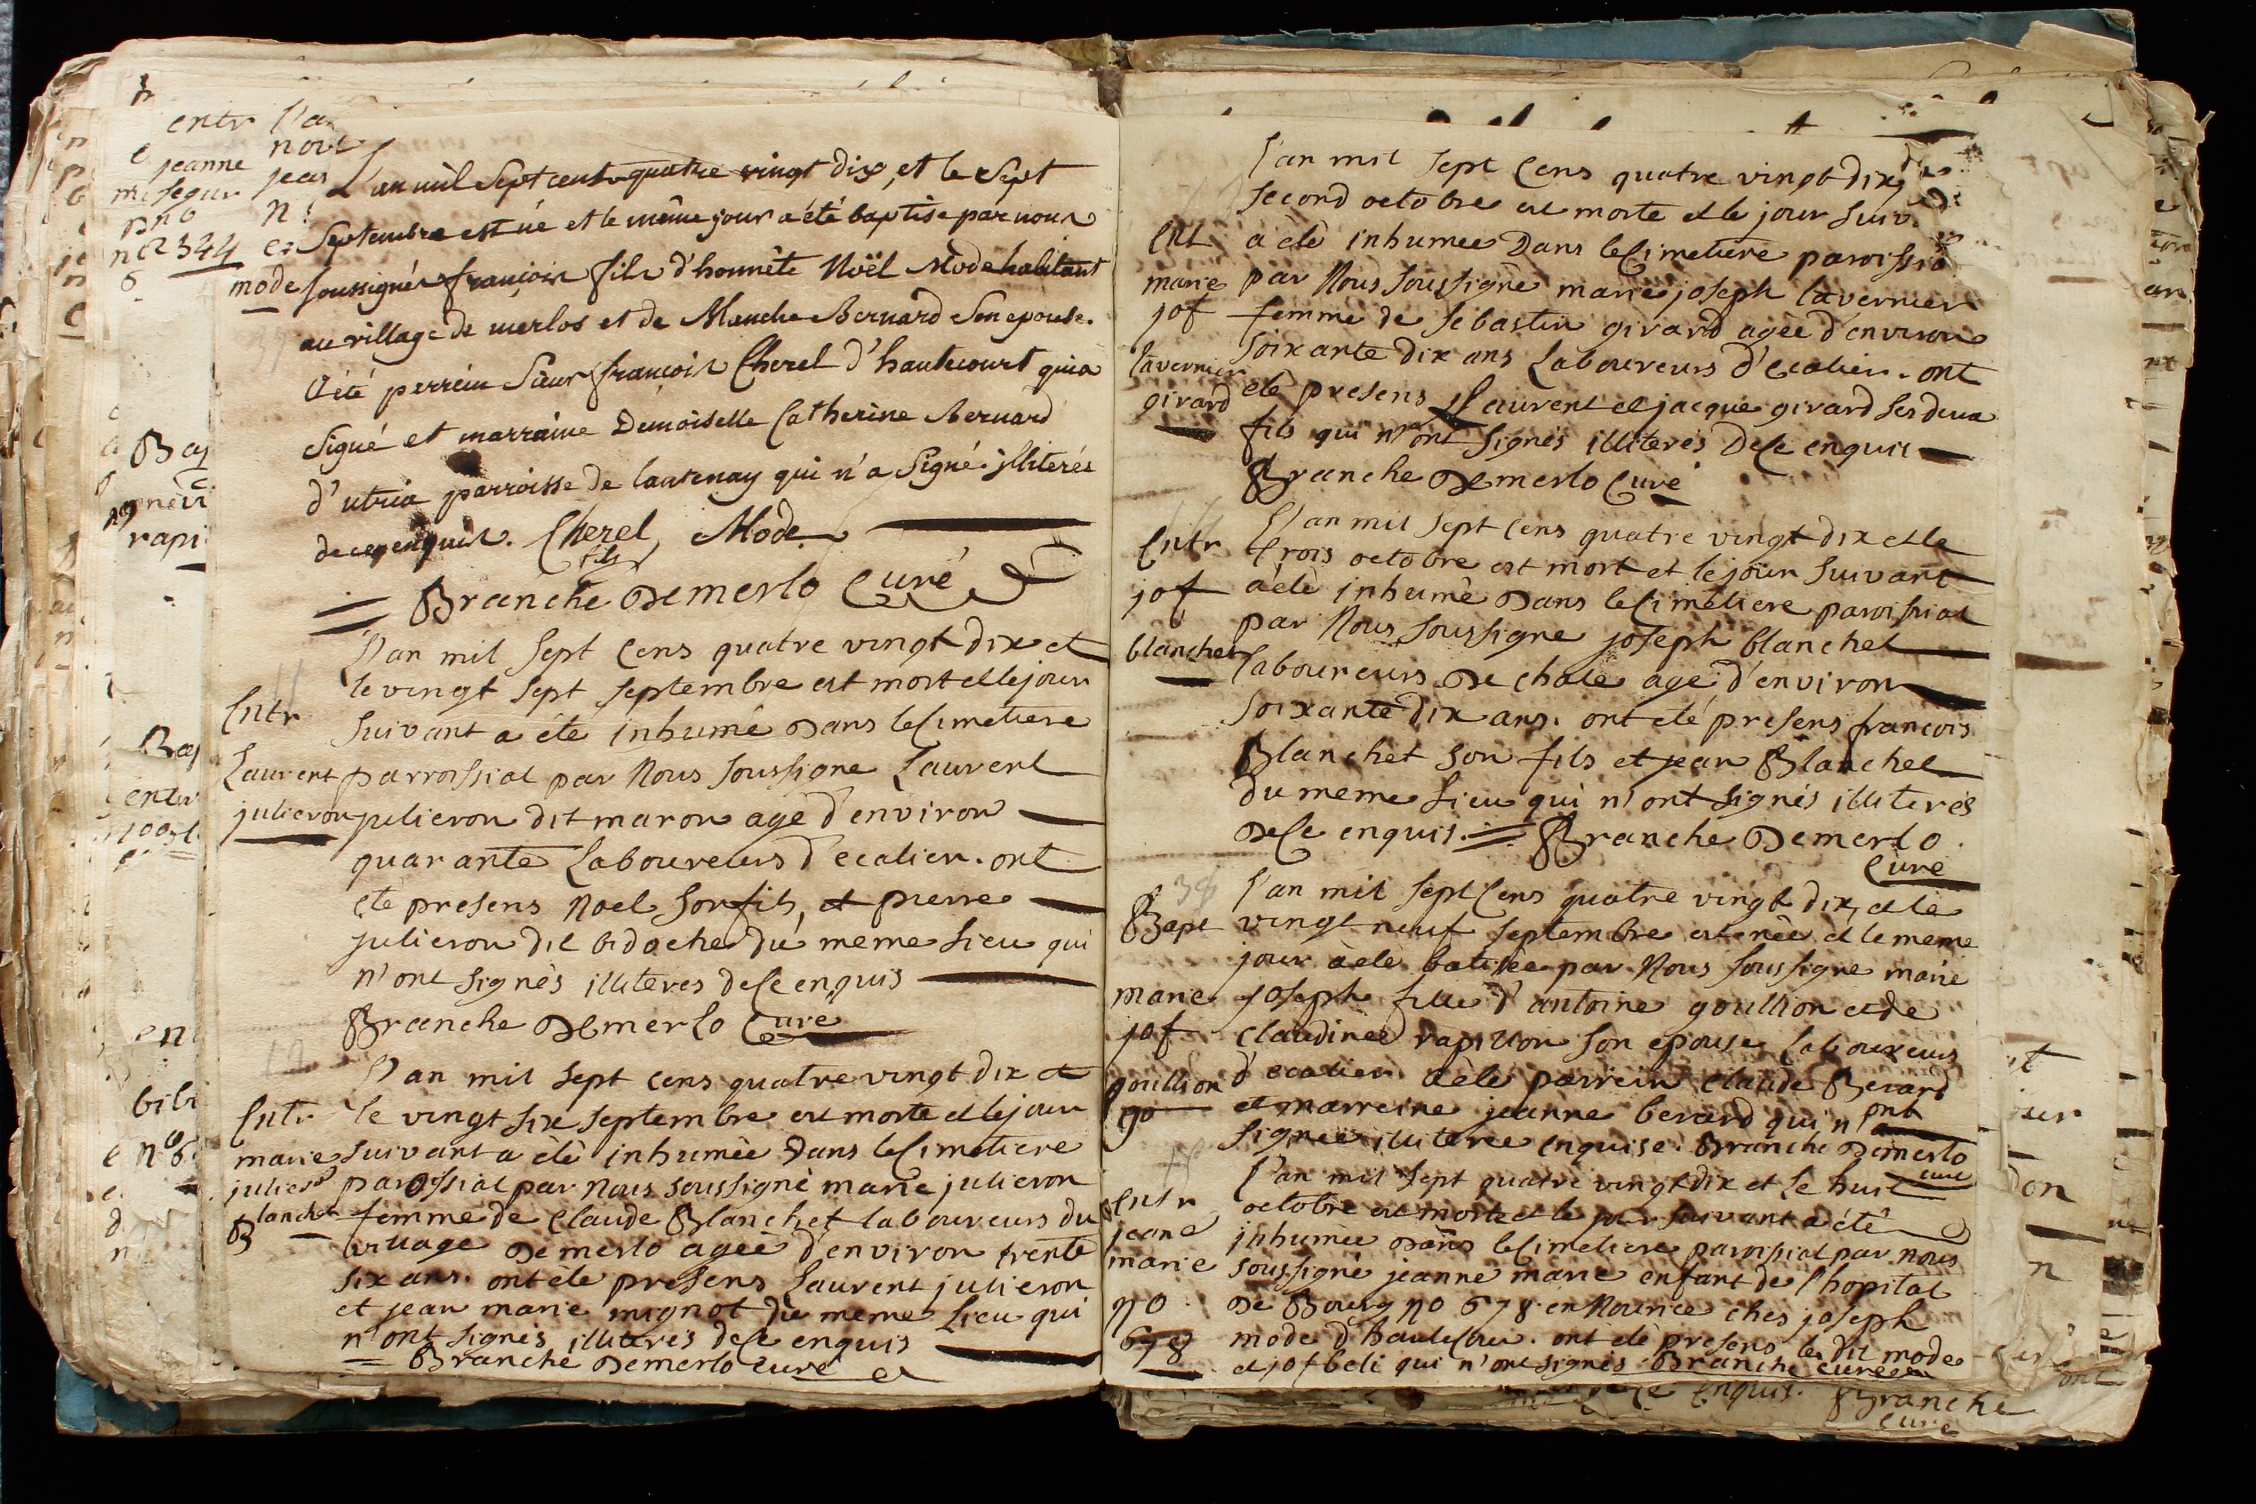 L'an mil Sept cent quatre vingt dix, et le Sept
Septembre est né et le même jour a été baptisé par nous
mode soussignés françois fils d'honnête Noël Mode habitant
au village de merlos et de Bernard Son epouse.
a été perrein Sieur françois Cherel d'hautecourt qui a
signé et marraine Demoiselle Catherine Bernard
d'utria parroisse de lantenay qui n'a Signé illiterés
de ce enquis. Cherel Mode
fils
Branche Demerlo Curé
L'an mil Sept Cens quatre vingt dix et
le vingt sept septembre est mort et le jour
Entr suivant a été inhumé Dans le Cimetiere
Laurent parroissial par Nous soussigne Laurent
julieron julieron dit maron agé d'environ
quarante Laboureurs d'ecalier. ont
ete presens Noel son fils, et pierre
julieron dit bidoche du meme Lieu qui
n'ont signès illiteres de Ce enquis
Branche Demerlo Curé
L'an mil sept cens quatre vingt dix et
Entr. le vingt six septembre est morte et le jour
marie suivant a étè inhumèe Dans le Cimetiere
parroissial par nous soussignè marie julieron
Blanchet femme de Claude Blanchet laboureurs du
village Demerlo ageè d'environ trente
six ans. ont ète presens Laurent julieron
et jean marie mignot du meme Lieu qui
n'ont signés illiterés de Ce enquis
Branche Demerlo Curé
entr l'a
jeanne
segur
n 344
Bap
rapi
Bap
entr
en
bibi
L'an mil sept Cens quatre vingt dix
second octobre est morte et le jour suiv
Ent a étè inhumee Dans le Cimetiere
marie par Nous soussignè marie joseph lavernier
jof femme de Sebastien girard ageè d'environ
soixante dix ans Laboureurs d'ecalier. ont
lavernier
girard etè presens Laurent et jacque girard ses deux
fils qui n'ont signés illiterés De Ce enquis
Branche Demerlo Curé
L'an mil sept Cens quatre vingt dix et le
Entr trois octobre est mort et le jour suivant
jof a étè inhumé Dans le Cimetiere paroissial
par Nous soussigne joseph blanchet
blanchet laboureurs De chale agé d'environ
soixante dix ans. ont eté presens francois
Blanchet son fils et jean Blanchet
du meme Lieu qui n'ont signés illiterés
De Ce enquis. Branche Demerlo
Curé
L'an mil sept Cens quatre vingt dix, et le
Bapt vingt neuf septembre est neè et le meme
jour a étè batisèe par Nous soussigne marie
marie joseph fille d'antoine goullion et de
jof Claudinee rapillon son epouse laboureurs
goullion d'ecalier a ete parrein Claude Berard
go et marreine jeanne berard qui n'ont
signée illiteree enquise. Branche Demerlo
curé
L'an mil sept quatre vingt dix et le huit
Entr octobre est morte et le jour suivant a étê
jeane inhumèe Dans le Cimetiere paroissial par nous
marie soussigné jeanne marie enfant de l'hopital
no de Bourg no 678 en Nourice ches joseph
678 mode d'hautecour. ont etè presens le dit mode
et jof beli qui n'ont signés Branche Curé
enquis. Branche
Curé